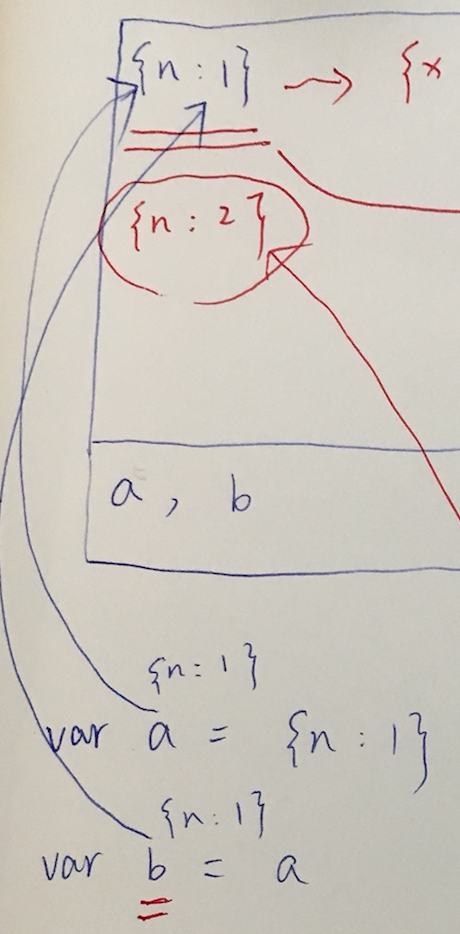 {n : 1} → {x
{n : 2}
a , b
{n : 1}
var a = {n : 1}
{n : 1}
var b = a